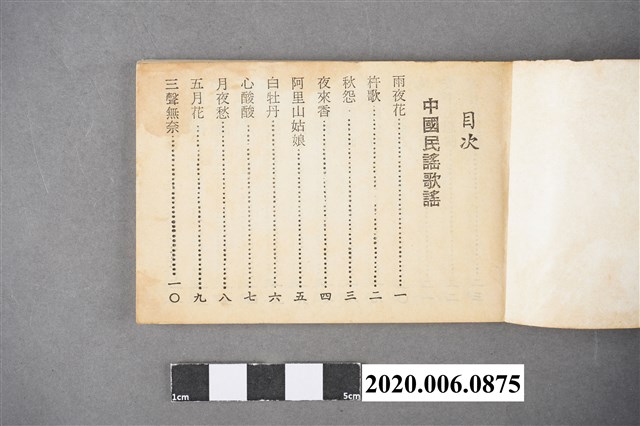 目次
中國民謠歌謠
雨夜花⋯⋯⋯⋯⋯⋯一
杵歌⋯⋯⋯⋯⋯⋯二
秋怨⋯⋯⋯⋯⋯⋯三
夜來香⋯⋯⋯⋯⋯⋯四
阿里山姑娘⋯⋯⋯⋯⋯⋯五
白牡丹⋯⋯⋯⋯⋯⋯六
心酸酸⋯⋯⋯⋯⋯⋯七
月夜愁⋯⋯⋯⋯⋯⋯八
五月花⋯⋯⋯⋯⋯⋯九
三聲無奈⋯⋯⋯⋯⋯⋯一〇
1cm 5cm
2020.006.0875